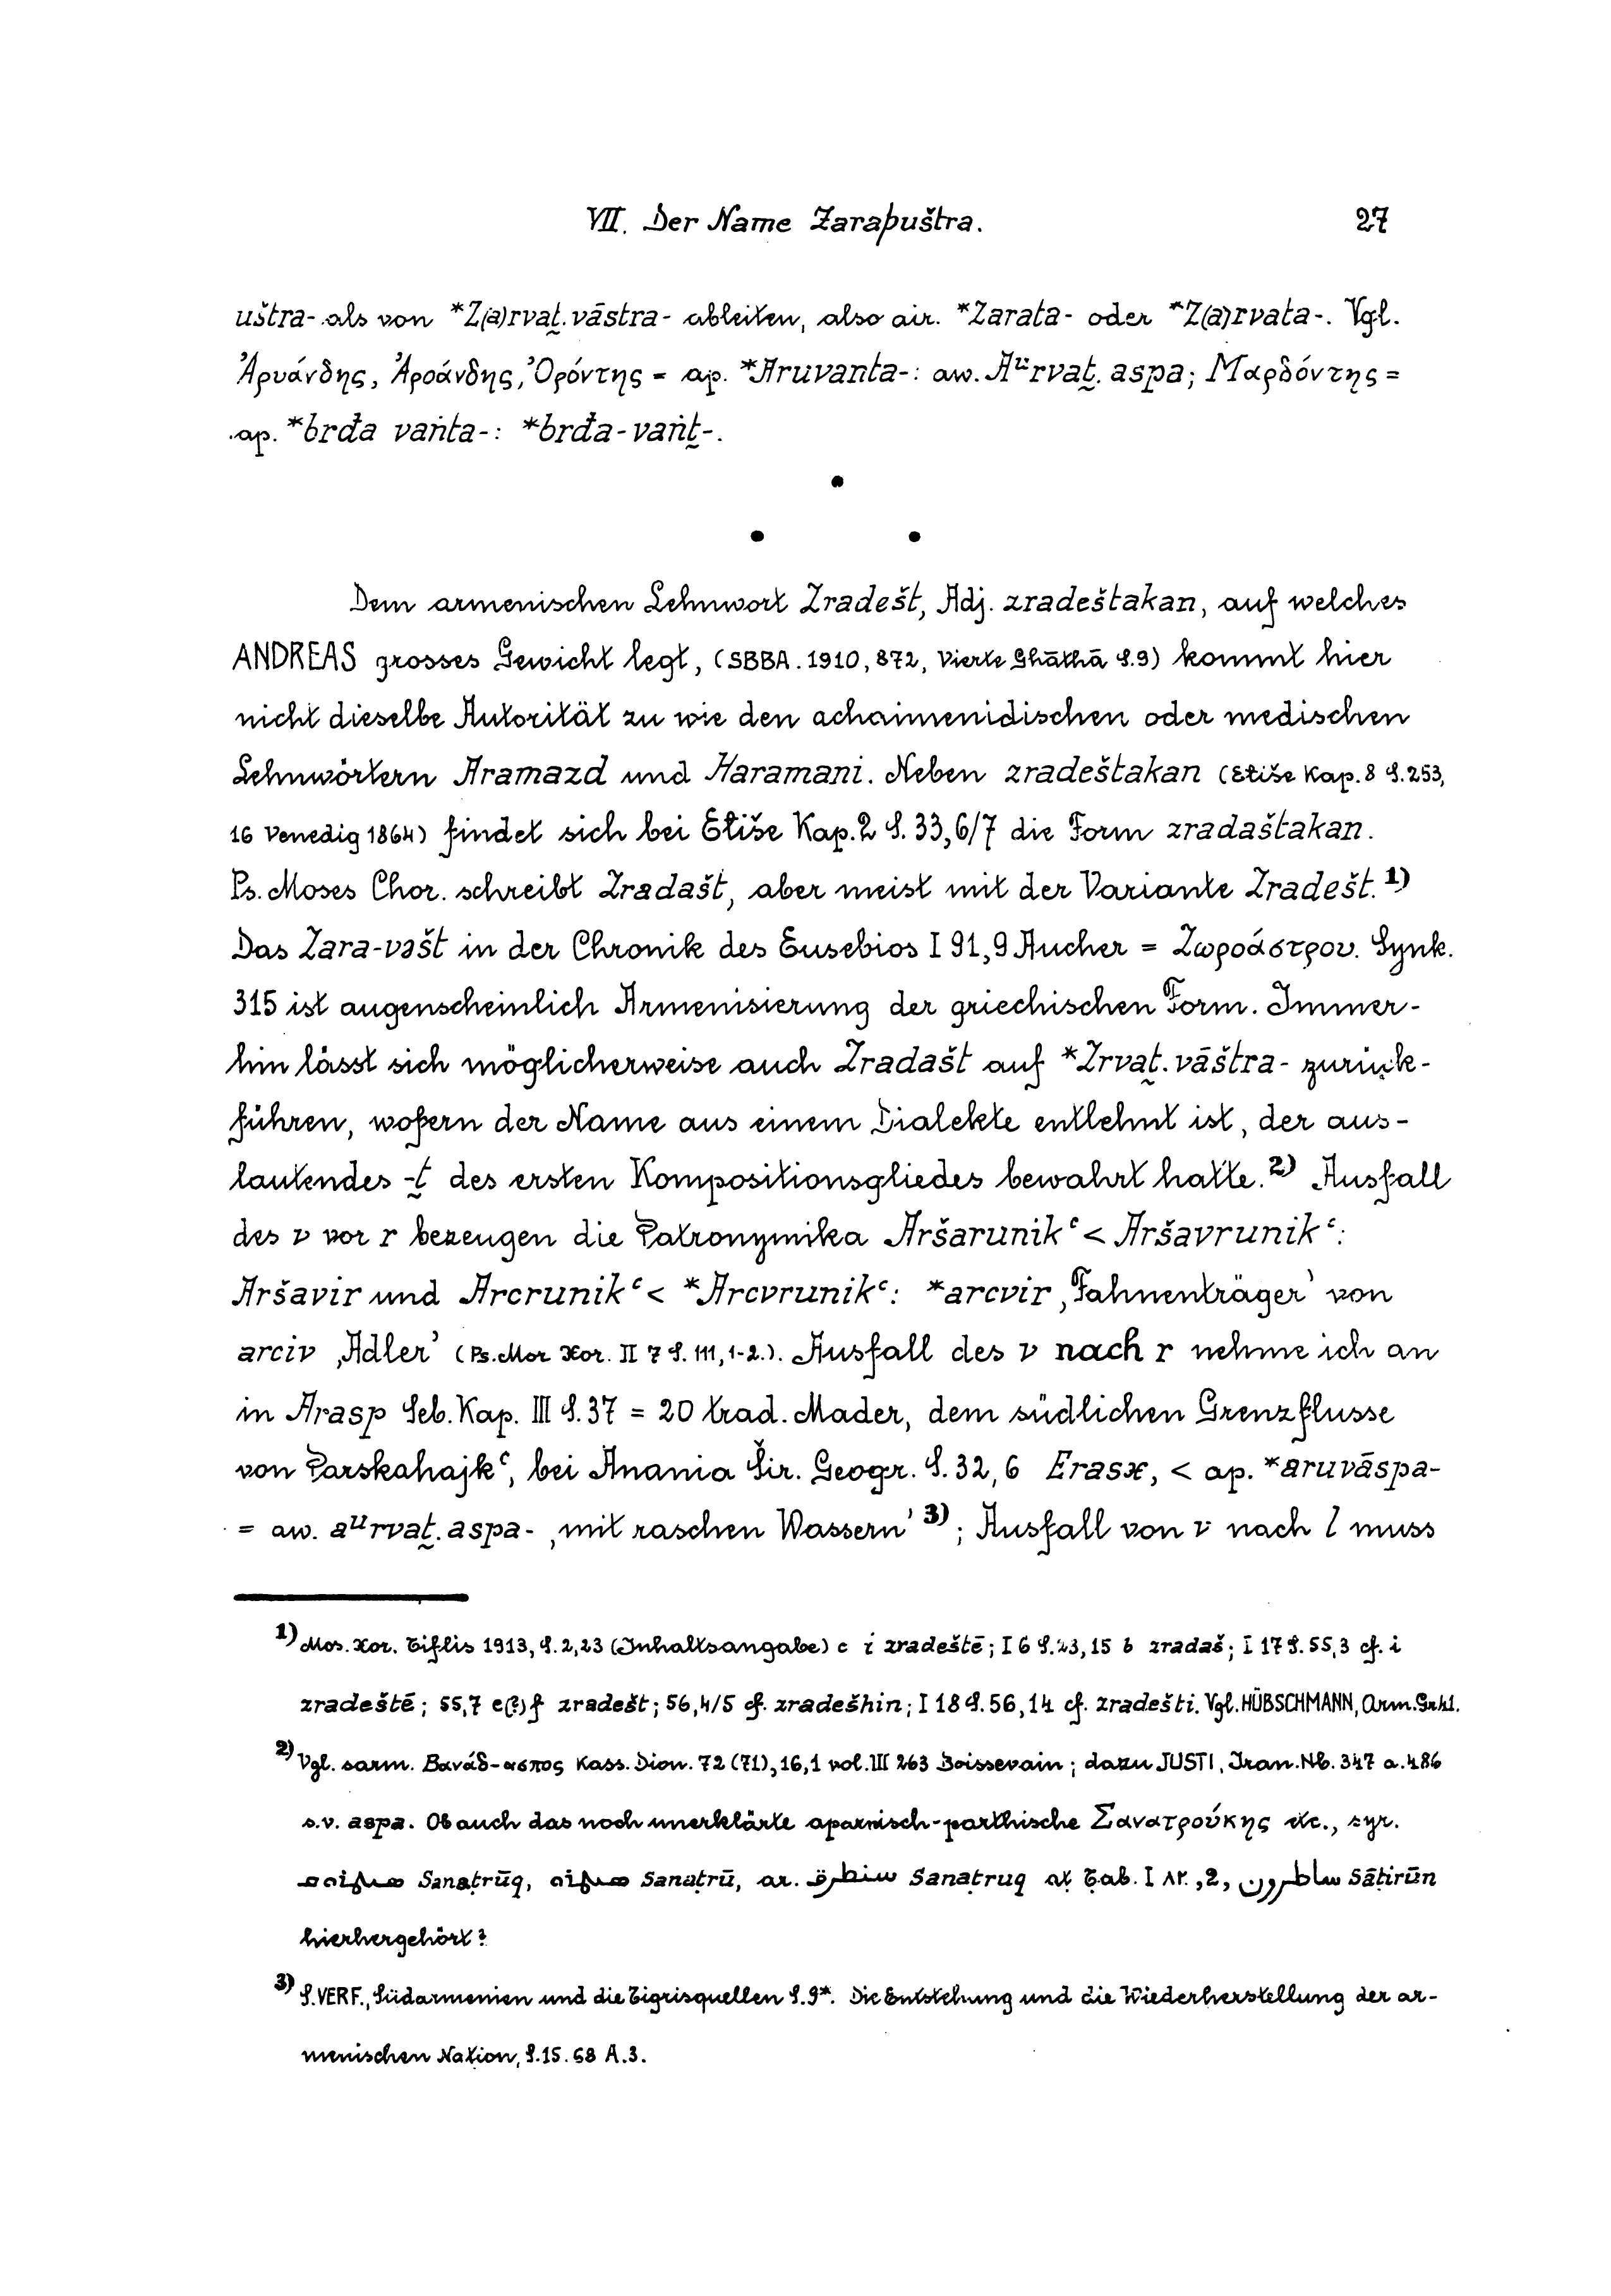 VII. Der Name Zaraþuštra. 27
uštra- als von *Z(a)rvat̰.vāstra- ableiten, also air. *Zarata- oder *Z(a)rvata-. Vgl.
Ἀρυάνδης, Ἀροάνδης, Ὀρόντης = ap. *Aruvanta-: aw. Aᵘrvat̰.aspa; Μαρδόντης =
ap. *brđa vaṅta-: *brđa-vaṅt̰-.
Dem armenischen Lehnwort Zradešt, Adj. zradeštakan, auf welches
ANDREAS grosses Gewicht legt, (SBBA. 1910, 872, Vierte Ghāthā S.9) kommt hier
nicht dieselbe Autorität zu wie den achaimenidischen oder medischen
Lehnwörtern Aramazd und Haramani. Neben zradeštakan (Ełiše Kap. 8 S. 253,
16 Venedig 1864) findet sich bei Ełiše Kap. 2 S. 33,6/7 die Form zradaštakan.
Ps. Moses Chor. schreibt Zradašt, aber meist mit der Variante Zradešt.¹⁾
Das Zara-vəšt in der Chronik des Eusebios I 91,9 Aucher = Ζωροάστρου. Synk.
315 ist augenscheinlich Armenisierung der griechischen Form. Immer-
hin lässt sich möglicherweise auch Zradašt auf *Zrvat̰.vāštra- zurück-
führen, wofern der Name aus einem Dialekte entlehnt ist, der aus-
lautendes -t̰ des ersten Kompositionsgliedes bewahrt hatte.²⁾ Ausfall
des v vor r bezeugen die Patronymika Aršarunikʿ < Aršavrunikʿ:
Aršavir und Arcrunikʿ < *Arcvrunikʿ: *arcvir ‚Fahnenträger’ von
arciv ‚Adler’ (Ps. Mos Xor. II 7 S. 111, 1-2.). Ausfall des v nach r nehme ich an
in Arasp Seb. Kap. III S. 37 = 20 trad. Mader, dem südlichen Grenzflusse
von Parskahajkʿ, bei Anania Šir. Geogr. S. 32, 6 Erasx, < ap. *aruvāspa-
= aw. aᵘrvat̰.aspa- ‚mit raschen Wassern’ ³⁾; Ausfall von v nach l muss
¹⁾ Mos. Xor. Tiflis 1913, S. 2,23 (Inhaltsangabe) c i zradeštē; I 6 S. 23, 15 b zradaš; I 17 S. 55,3 cf. i
zradeštē; 55,7 e(?)f zradešt; 56,4/5 cf. zradešhin; I 18 S. 56,14 cf. zradešti. Vgl. HÜBSCHMANN, Arm. Gr. 41.
²⁾ Vgl. sarm. Βανάδ-ασπος Kass. Dion. 72 (71), 16,1 vol. III 263 Boissevain; dazu JUSTI, Iran. Nb. 347 a. 486
s.v. aspa. Ob auch das noch unerklärte aparnisch-parthische Σανατρούκης etc., syr.
ܣܢܛܪܘܩ Sanaṭrūq, ܣܢܛܪܘ Sanaṭrū, ar. سنطرق Sanaṭruq aṭ Ṭab. I ٨٢٠, 2, ساطرون Sāṭirūn
hierhergehört?
³⁾ S. VERF., Südarmenien und die Tigrisquellen S. 9*. Die Entstehung und die Wiederherstellung der ar-
menischen Nation, S. 15. 68 A. 3.